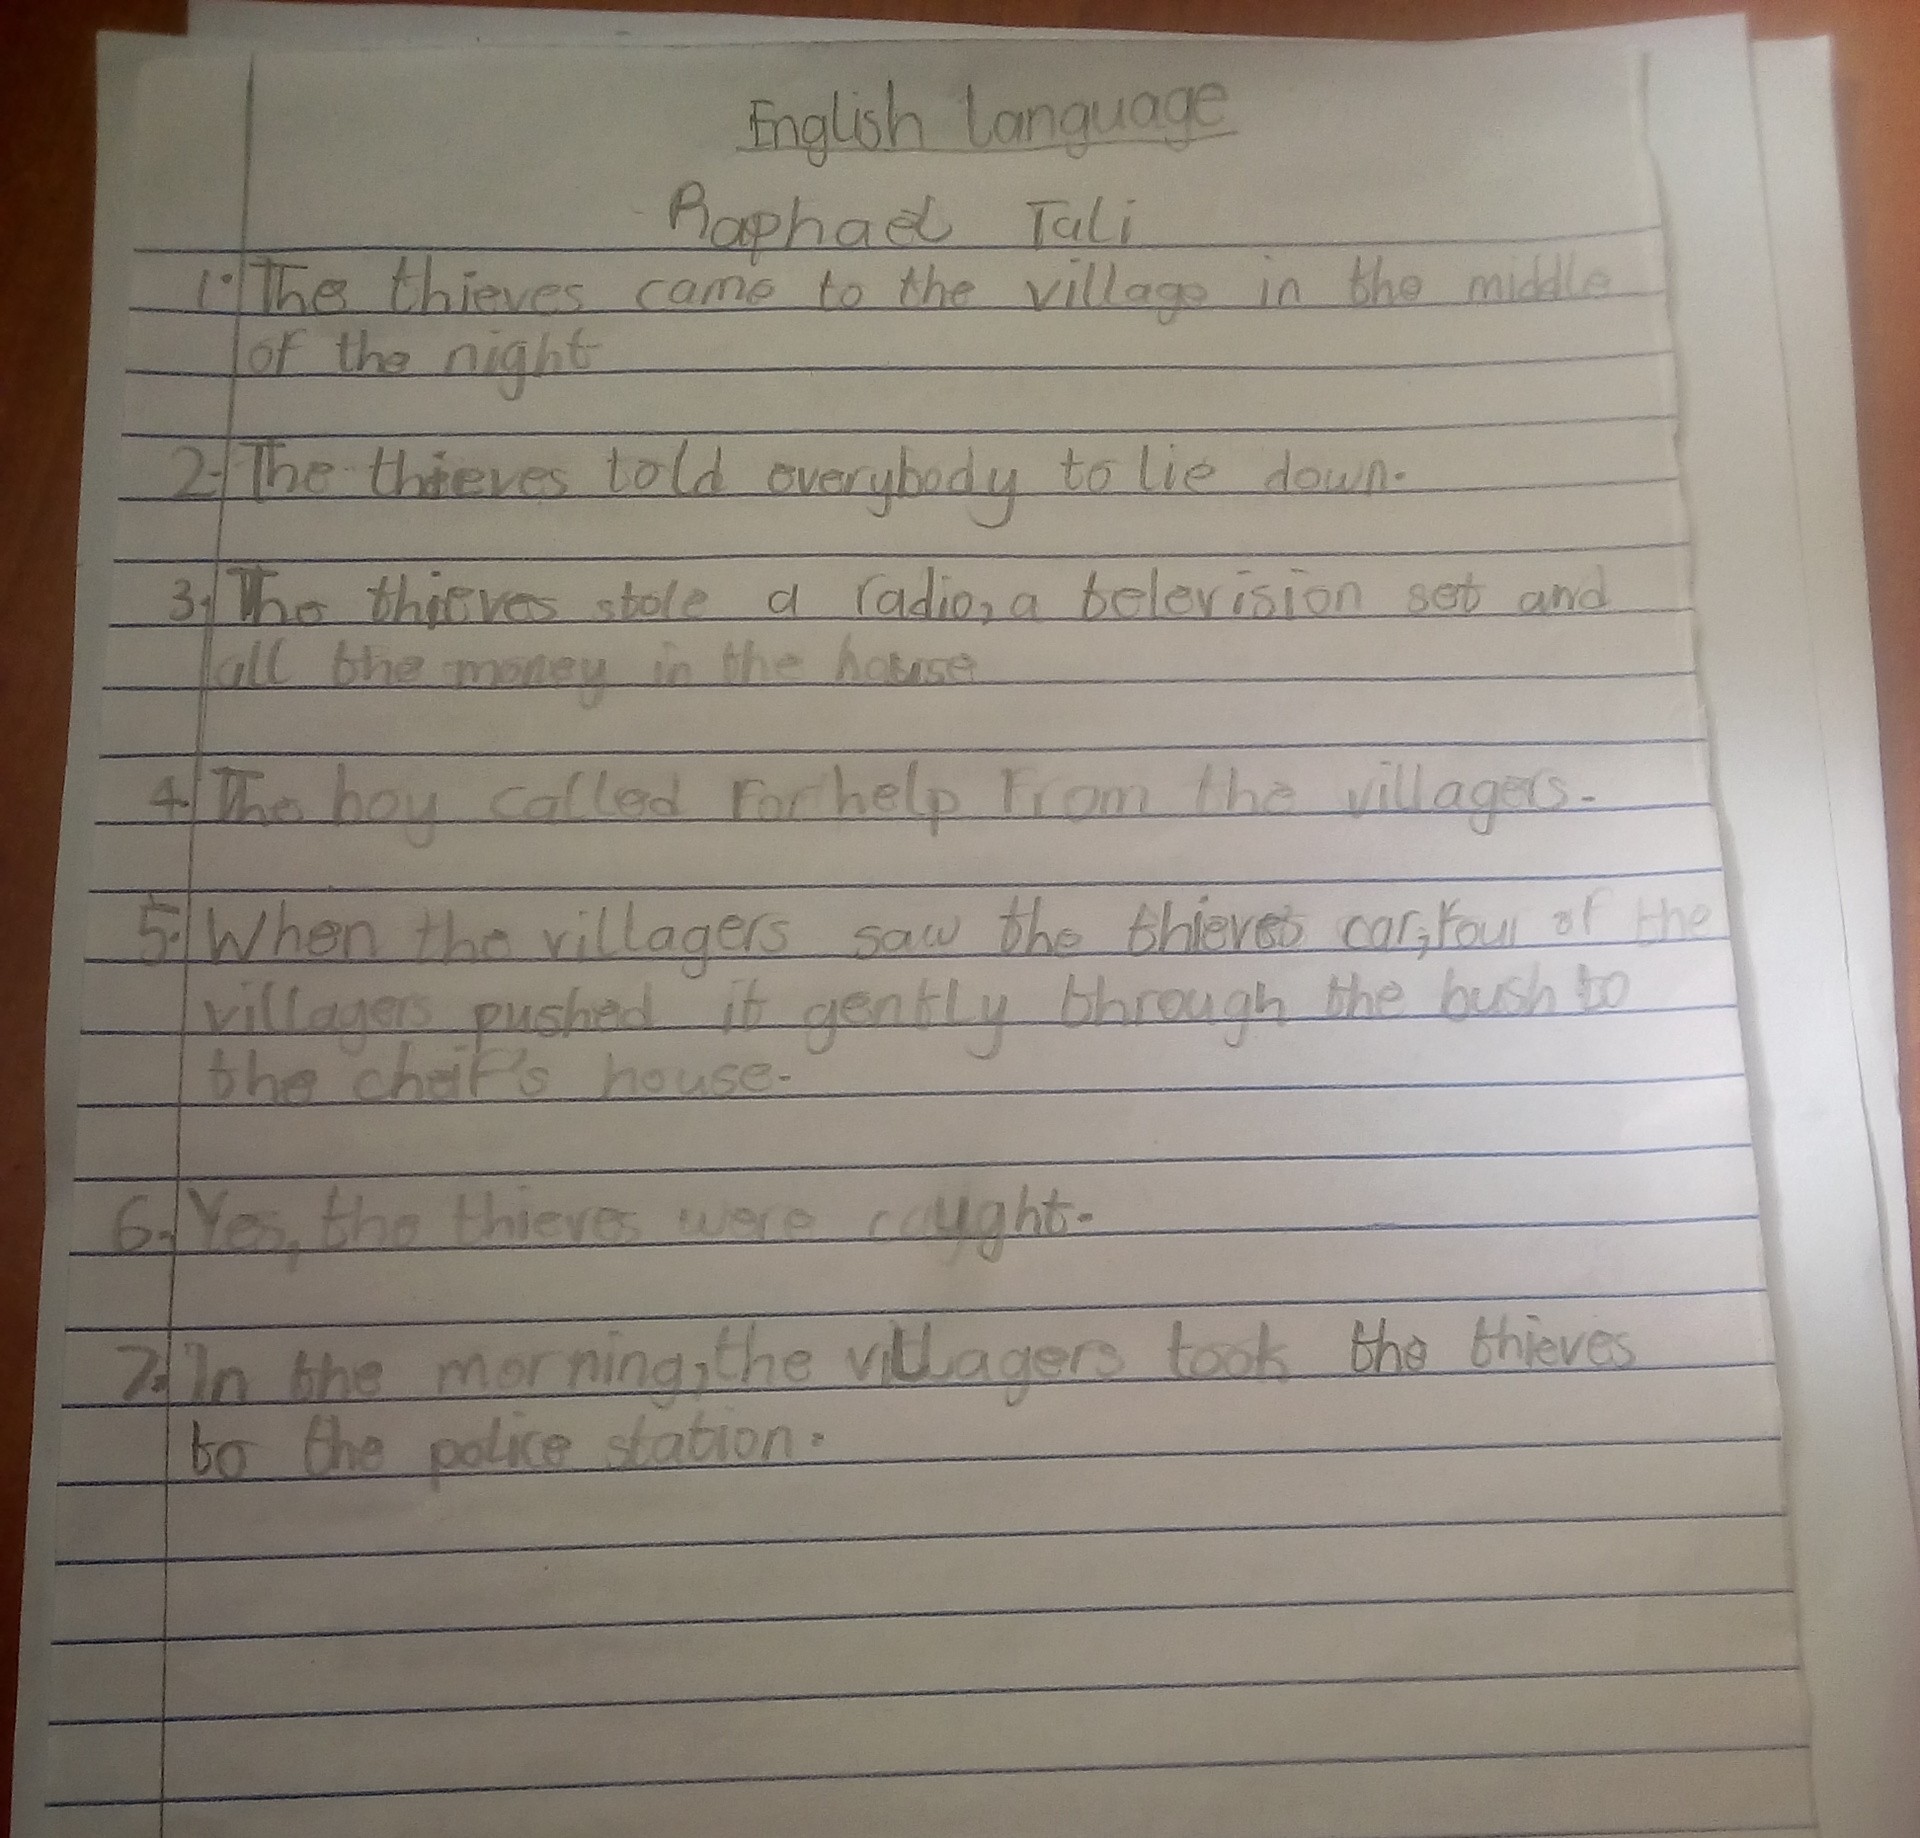 English Language
Raphael Tali
1. The thieves came to the village in the middle
of the night
2. The thieves told everybody to lie down.
3. The thieves stole a radio, a television set and
all the money in the house
4. The boy called For help From the villagers.
5. When the villagers saw the thieves car, four of the
villagers pushed it gently through the bush to
the cheif's house.
6. Yes, the thieves were caught.
7. In the morning, the villagers took the thieves
to the police station.